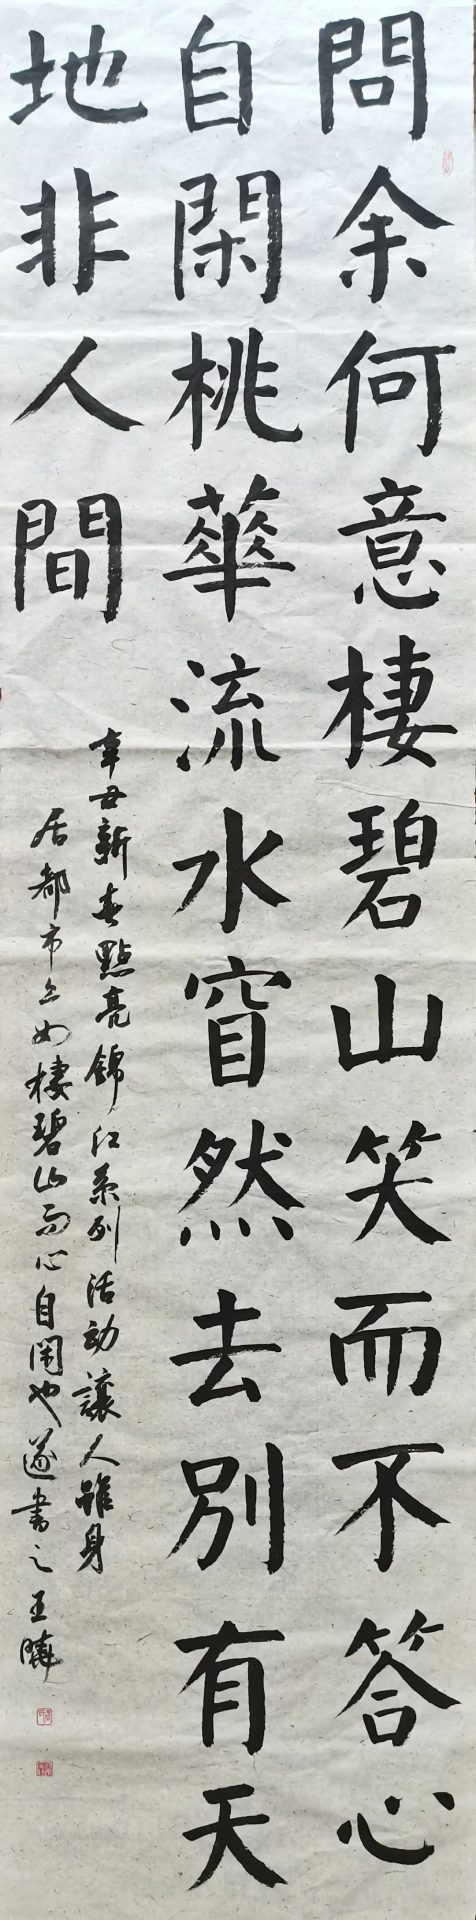 問余何意棲碧山笑而不答心
自閑桃華流水窅然去別有天
地非人間
辛丑新春點亮錦江系列活動讓人雖身
居都市亦如棲碧山而心自閑也遂書之王曉